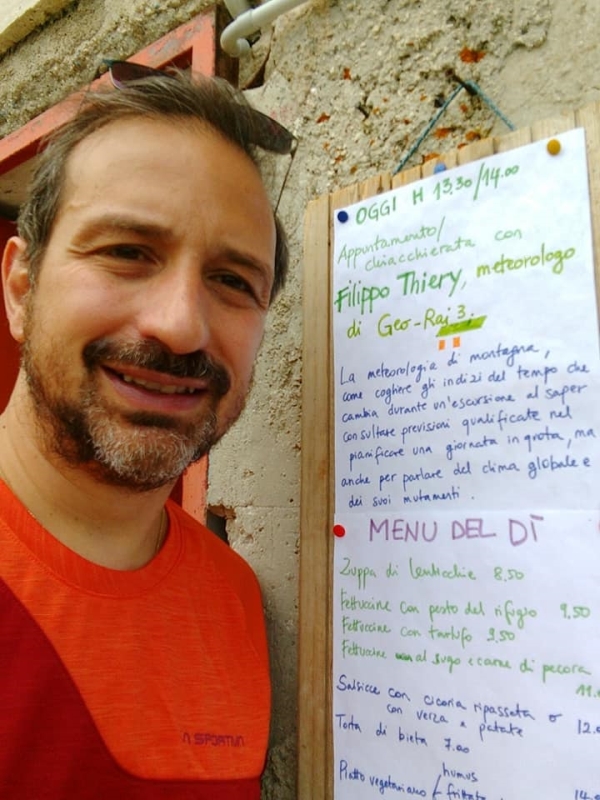 OGGI H 13.30/14.00
Appuntamento/
chiacchierata con
Filippo Thiery, meteorologo
di Geo-Rai 3.
La meteorologia di montagna,
come cogliere gli indizi del tempo che
cambia durante un'escursione al saper
consultare previsioni qualificate nel
pianificare una giornata in quota, ma
anche per parlare del clima globale e
dei suoi mutamenti.
MENU DEL DÌ
Zuppa di lenticchie 8,50
Fettuccine con pesto del rifugio 9,50
Fettuccine con tartufo 9,50
Fettuccine al sugo e carne di pecora
11.
Salsicce con cicoria ripassata o 12.
con verza e patate
Torta di bieta 7.00
humus
Piatto vegetariano / frittata
14.
SPORTIVA